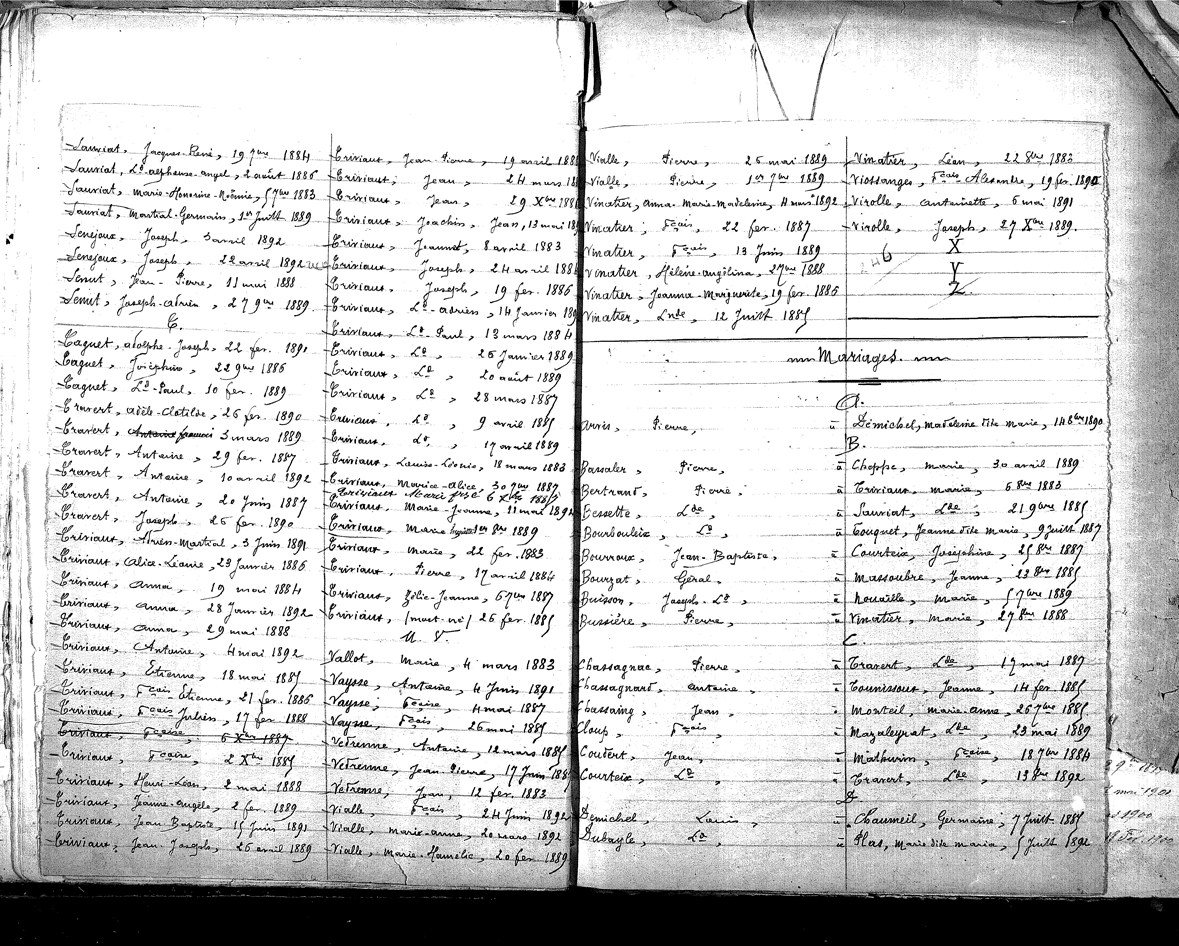 Sauviat, Jacques-René, 19 7bre 1884
Sauviat, Ld-alphonse-angel, 2 août 1886
Sauviat, Marie-Honorine-Noëmie, 5 7bre 1883
Sauviat, Martial-Germain, 1er Juillt 1889
Senejoux, Joseph, 3 avril 1892
Senejoux, Joseph, 22 avril 1892
Senut, Jean-Pierre, 11 mai 1888
Senut, Joseph-adrien, 27 9bre 1889.
T.
Taguet, adolphe-Joseph, 22 fer. 1891
Taguet, Joséphine, 22 9bre 1886
Taguet, Ld-Paul, 10 fer. 1889
Travert, adèle-Clotilde, 26 fer. 1890
Travert, 3 mars 1889
Travert, Antoine, 29 fer. 1887
Travert, Antoine, 10 avril 1892
Travert, Antoine, 20 Juin 1887
Travert, Joseph, 26 fer. 1890
Triviaux, Adrien-Martial, 3 Juin 1891
Triviaux, Alice-Léonie, 23 Janvier 1886
Triviaux, anna, 19 mai 1884
Triviaux, anna, 28 Janvier 1892
Triviaux, anna, 29 mai 1888
Triviaux, Antoine, 4 mai 1892
Triviaux, Etienne, 18 mai 1885
Triviaux, Fçois-Etienne, 21 fer. 1886
Triviaux, Fçois Julien, 17 fer. 1888
Triviaux, Fçoise, 6 Xbre 1887
Triviaux, Fçoise, 2 Xbre 1885
Triviaux, Henri-Léon, 2 mai 1888
Triviaux, Jeanne-angèle, 2 fer. 1889
Triviaux, Jean Baptiste, 15 Juin 1891
Triviaux, Jean-Joseph, 26 avril 1889
Triviaux, Jean-Pierre, 19 avril 188
Triviaux, Jean, 24 mars 18
Triviaux, Jean, 29 Xbre 188
Triviaux, Joachin, Jean, 13 mai 18
Triviaux, Jeannet, 8 avril 1883
Triviaux, Joseph, 24 avril 188
Triviaux, Joseph, 19 fer. 1886
Triviaux, Ld-adrien, 14 Janvier 189
Triviaux, Ld-Paul, 13 mars 1884
Triviaux, Ld, 26 Janvier 1889
Triviaux, Ld, 20 août 1889
Triviaux, Ld, 28 mars 1887
Triviaux, Ld, 9 avril 1885
Triviaux, Ld, 17 avril 1889
Triviaux, Louise-Léonie, 18 mars 1883
Triviaux, Marie-Alice, 30 7bre 1887
Triviaux Marie fse 6 Xbre 1887
Triviaux, Marie-Jeanne, 11 mai 1892
Triviaux, Marie 1er 8bre 1889
Triviaux, Marie, 22 fer. 1883
Triviaux, Pierre, 17 avril 1884
Triviaux, Zélie-Jeanne, 6 7bre 1887
Triviaux, (mort-né) 26 fer. 1885
U. V.
Vallot, Marie, 4 mars 1883
Vaysse, Antoine, 4 Juin 1891
Vaysse, Fçoise, 4 mai 1887
Vaysse, Fçois, 26 mai 1885
Vedrenne, Antoine, 12 mars 1885
Vedrenne, Jean-Pierre, 17 Juin 188
Vedrenne, Jean, 12 fer. 1883
Vialle, Fçois, 24 Juin 1892
Vialle, Marie-anne, 20 mars 1892
Vialle, Marie-Hamelie, 20 fer. 1889
Vialle, Pierre, 26 mai 1889
Vialle, Pierre, 1er 7bre 1889
Vinatier, anna-Marie-Madeleine, 11 mars 1892
Vinatier, Fçois, 22 fer. 1887
Vinatier, Fçois, 13 Juin 1889
Vinatier, Hélène-angélina, 2 7bre 1888
Vinatier, Jeanne-Marguerite, 19 fer. 1886
Vinatier, Lnde, 12 Juillt 1885
Vinatier, Léon, 22 8bre 1883
Viossanges, Fçois-Alexandre, 19 fer. 1890
Virolle, antoinette, 6 mai 1891
Virolle, Joseph, 27 Xbre 1889.
246
X
Y
Z.
Mariages.
A.
Arvis, Pierre, à Démichel, Madeleine dite Marie, 14 6bre 1890
B.
Bassaler, Pierre, à Choppe, Marie, 30 avril 1889
Bertrand, Pierre, à Triviaux, Marie, 6 8bre 1883
Bessette, Lde, à Sauviat, Lde, 21 9bre 1885
Bourbouleix, Ld, à Touquet, Jeanne dite Marie, 9 Juillt 1887
Bourroux, Jean-Baptiste, à Courteix, Joséphine, 25 8bre 1887
Bouzat, Géral, à Massoubre, Jeanne, 23 8bre 1885
Buisson, Joseph-Ld, à Nouaille, Marie, 5 7bre 1889
Bussière, Pierre, à Vinatier, Marie, 27 8bre 1888
C.
Chassagnac, Pierre, à Travert, Lde, 17 mai 1887
Chassagnard, antoine, à Tounissoux, Jeanne, 14 fer. 1885
Chassaing, Jean, à Monteil, Marie-anne, 26 7bre 1885
Cloup, Fçois, à Mazaleyrat, Lde, 23 mai 1889
Coudert, Jean, à Mathurin, Fçoise, 18 7bre 1884
Courteix, Ld, à Travert, Lde, 13 8bre 1892
D.
Démichel, Louis, à Chaumeil, Germaine, 7 Juillt 1885
Dubayle, Ld, à Plas, Marie dite Maria, 5 Juillt 1892
mai 1900
1900